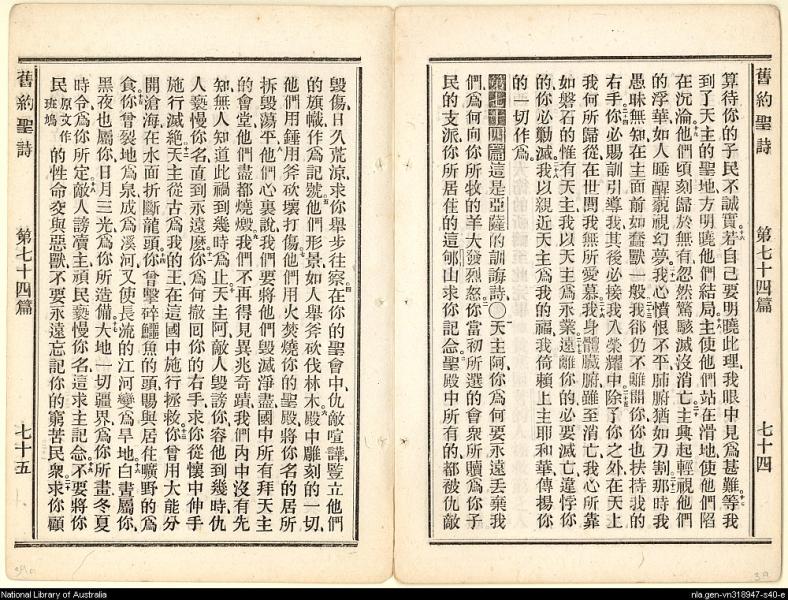 舊約聖詩 第七十四篇 七十四
算待你的子民不誠實若自己要明曉此理我眼中見爲甚難等我
到了天主的聖地方明曉他們結局主使他們站在滑地使他們陷
在沉淪他們頃刻歸於無有忽然驚駭滅沒消亡主興起輕視他們
的浮華如人睡醒藐視幻夢我心憤恨不平肺腑猶如刀割那時我
愚昧無知在主面前如蠢獸一般我卻仍不離開你你也扶持我的
右手你必賜訓引導我其後必接我入榮耀中除了你之外在天上
我何所歸從在世間我無所愛慕我身體臟腑雖至消亡我心所靠
如磐石的惟有天主我以天主爲永業遠離你的必要滅亡違悖你
的你必勦滅我以親近天主爲我的福我倚賴上主耶和華傳揚你
的一切作爲
第七十四篇這是亞薩的訓誨詩〇天主阿你爲何要永遠丟棄我
們爲何向你所牧的羊大發烈怒你當初所選的會衆所贖爲你子
民的支派你所居住的這郇山求你記念聖殿中所有的都被仇敵
毀傷日久荒涼求你舉步往察在你的聖會中仇敵喧譁豎立他們
的旗幟作爲記號他們形景如人舉斧砍伐林木殿中雕刻的一切
他們用錘用斧砍壞打傷他們用火焚燒你的聖殿將你名的居所
拆毀蕩平他們心裏說我們要將他們毀滅淨盡國中所有拜天主
的會堂他們盡都燒燬我們不再得見異兆奇蹟我們內中沒有先
知無人知道此禍到幾時爲止天主阿敵人毀謗你容他到幾時仇
人褻慢你名直到永遠麼你爲何撤回你的右手求你從懷中伸手
施行滅絕天主從古爲我的王在這國中施行拯救你曾用大能分
開滄海在水面折斷龍頭你曾擊碎鱷魚的頭賜與居住曠野的爲
食你曾裂地爲泉成爲溪河又使長流的江河變爲旱地白晝屬你
黑夜也屬你日月三光爲你所造備大地一切疆界爲你所畫冬夏
時令爲你所定敵人謗讟主頑民褻慢你名這求主記念不要將你
民原文作班鳩的性命交與惡獸不要永遠忘記你的窮苦民衆求你顧
舊約聖詩 第七十四篇 七十五
National Library of Australia
nla.gen-vn318947-s40-e